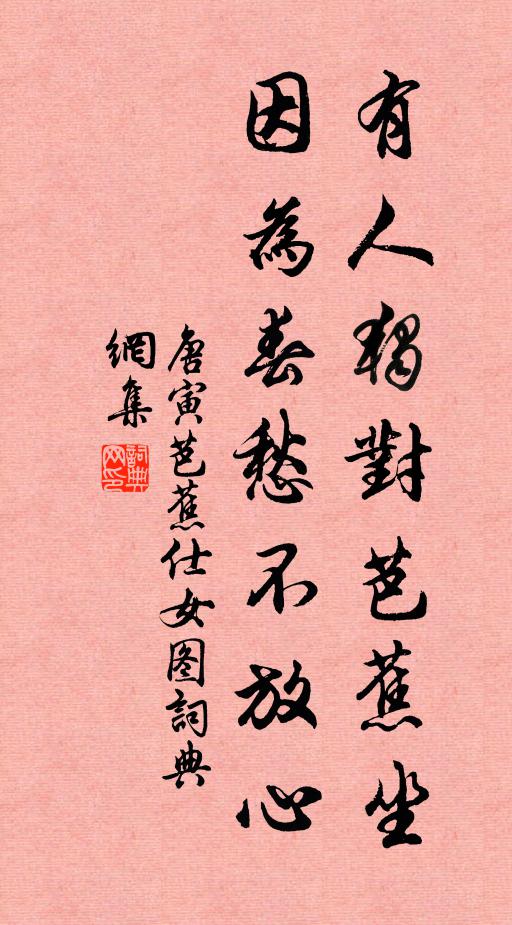 有人獨對芭蕉坐
因為春愁不放心
唐寅芭蕉仕女图詞典
網集
詞典
网印